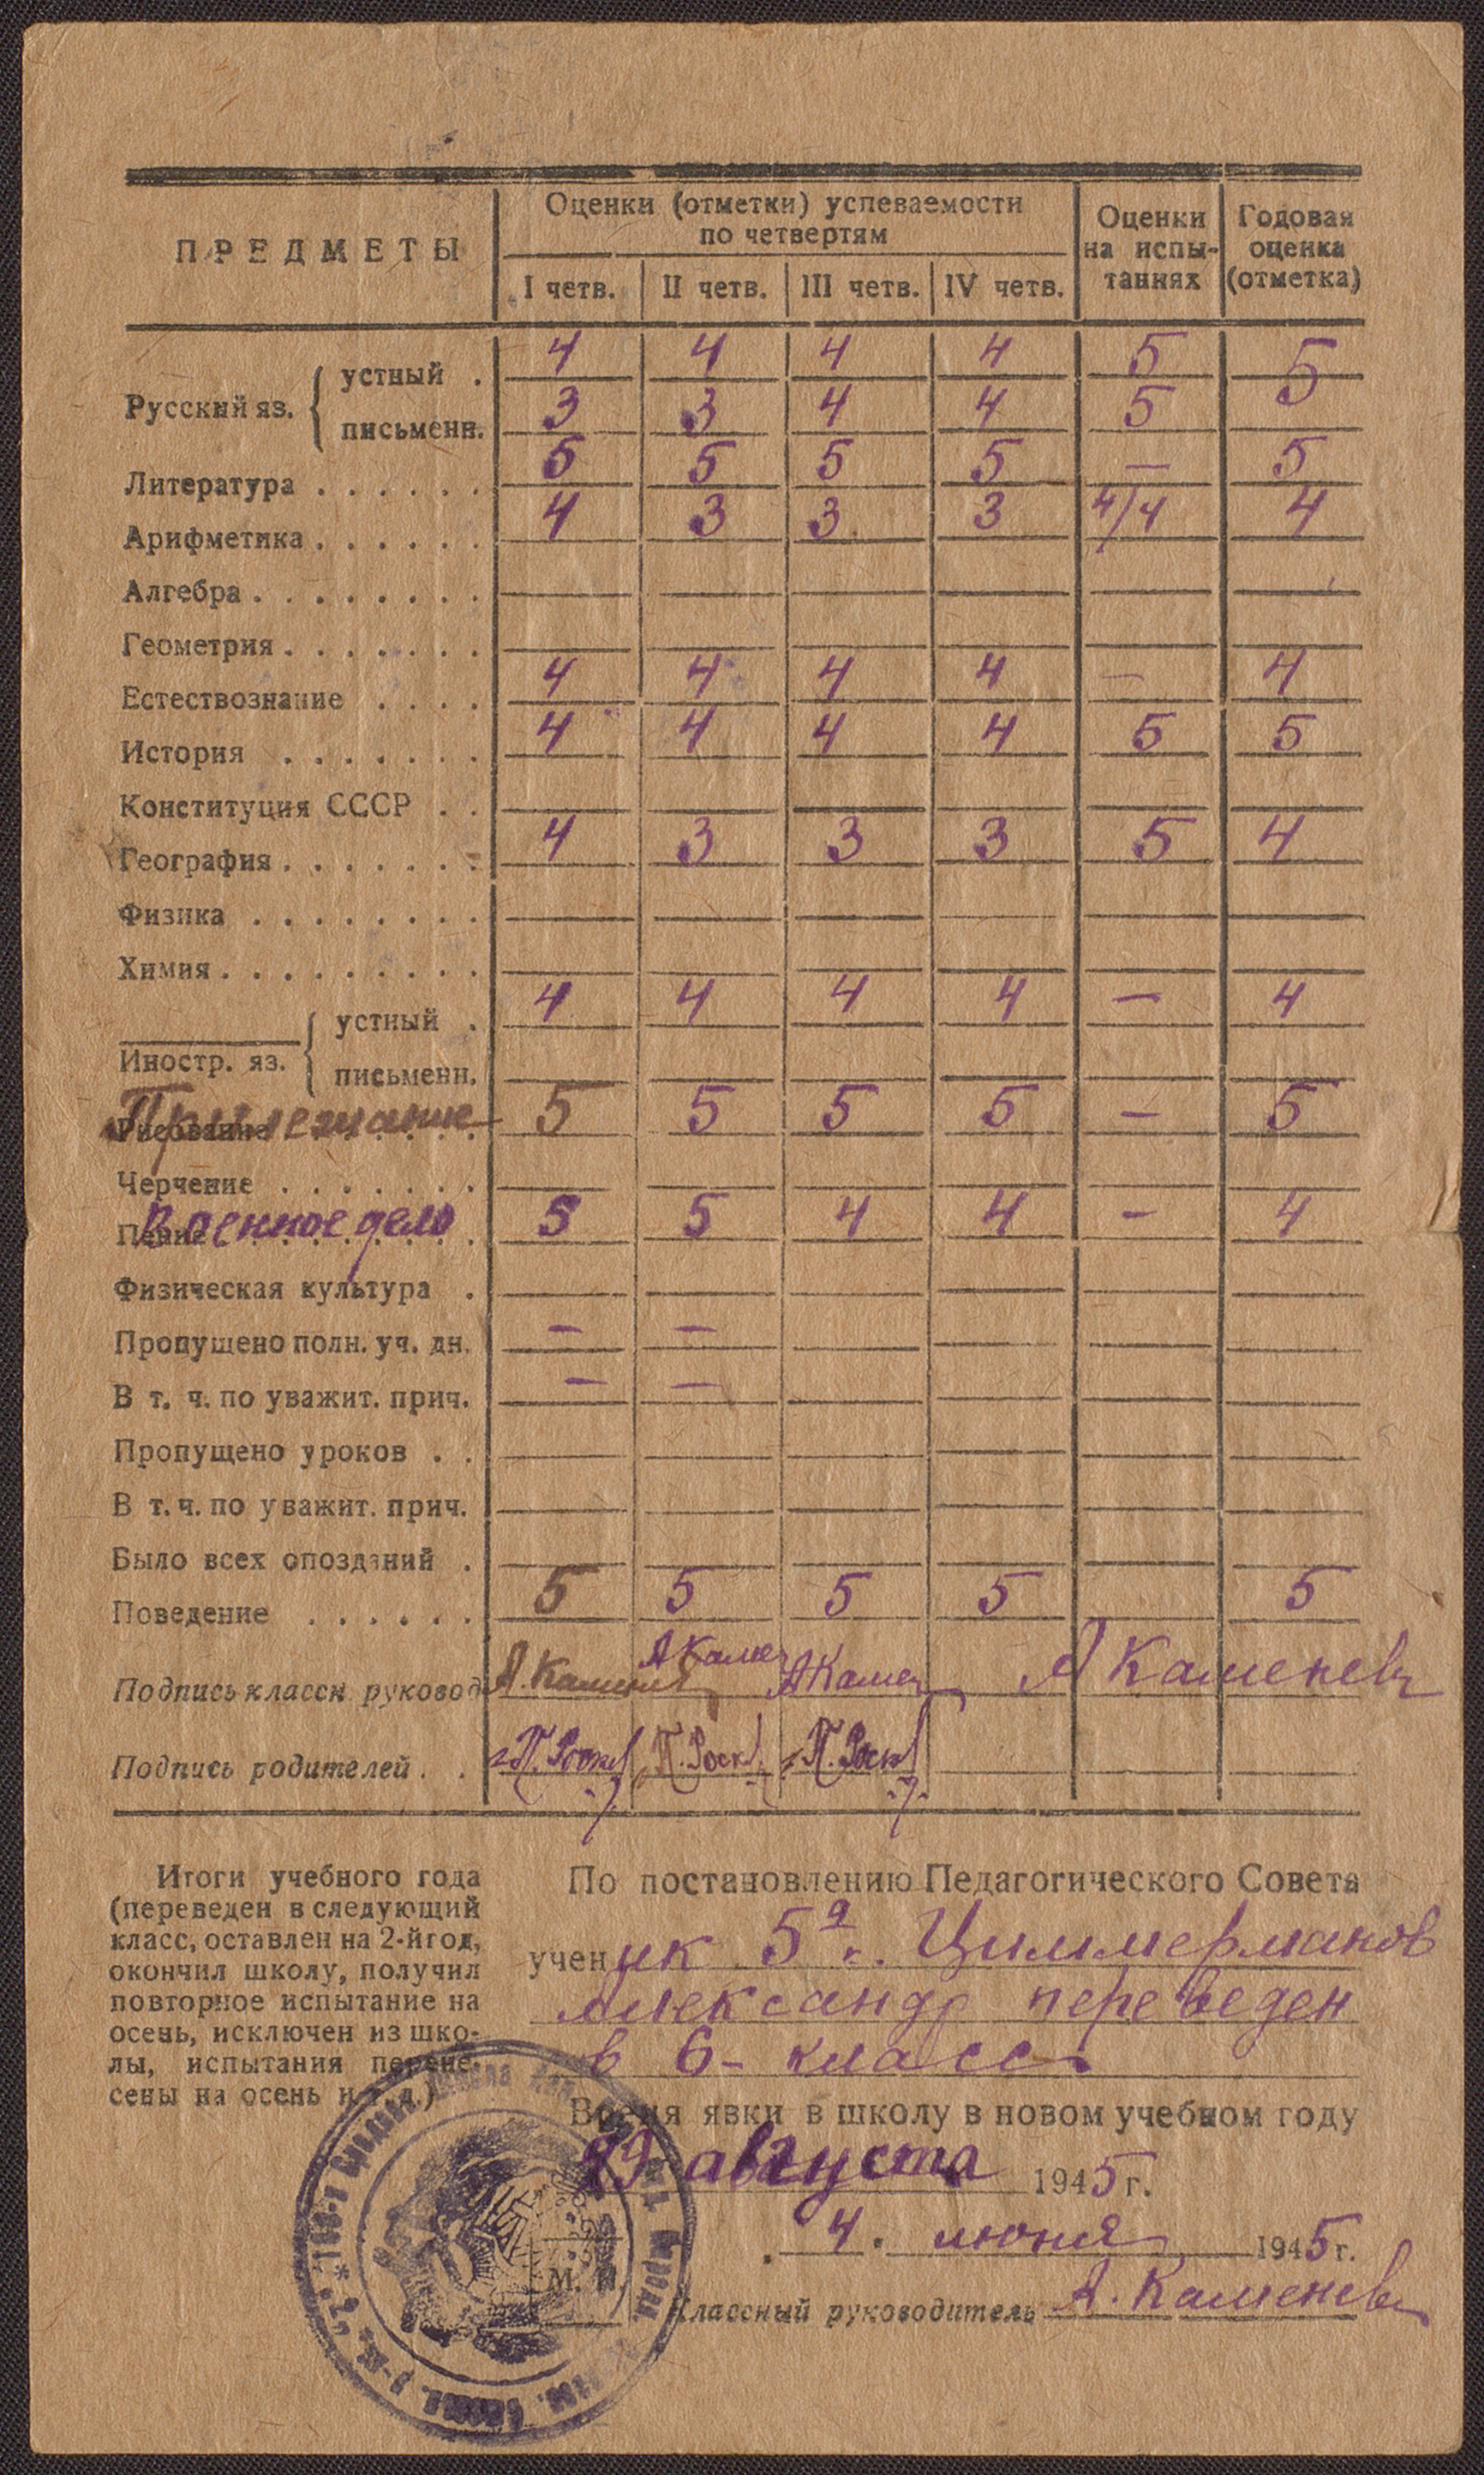 ПРЕДМЕТЫ Оценки (отметки) успеваемости по четвертям Оценки на испытаниях Годовая оценка (отметка)
I четв. II четв. III четв. IV четв.
Русский яз. устный . 4 4 4 4 5 5
письменн. 3 3 4 4 5
Литература . . . . . . 5 5 5 5 — 5
Арифметика . . . . . . 4 3 3 3 4/4 4
Алгебра . . . . . . . .
Геометрия . . . . . . .
Естествознание . . . . 4 4 4 4 — 4
История . . . . . . . 4 4 4 4 5 5
Конституция СССР . .
География . . . . . . . 4 3 3 3 5 4
Физика . . . . . . . .
Химия . . . . . . . . .
Иностр. яз. устный . 4 4 4 4 — 4
письменн.
Рисование Прилежание 5 5 5 5 — 5
Черчение . . . . . . .
Пение Военное дело 5 5 4 4 — 4
Физическая культура .
Пропущено полн. уч. дн. — —
В т. ч. по уважит. прич. — —
Пропущено уроков . .
В т. ч. по уважит. прич.
Было всех опозданий .
Поведение . . . . . . 5 5 5 5 5
Подпись классн. руковод. А. Каменев А Каме А Камен А Каменев
Подпись родителей . .
Итоги учебного года
(переведен в следующий
класс, оставлен на 2-й год,
окончил школу, получил
повторное испытание на
осень, исключен из шко-
лы, испытания перене-
сены на осень и т. д.)
По постановлению Педагогического Совета
ученик 5а к. Циммерманов
Александр переведен
в 6- класс.
Время явки в школу в новом учебном году
29 августа 1945 г.
4. июня 1945 г.
М. П.
Классный руководитель А. Каменев